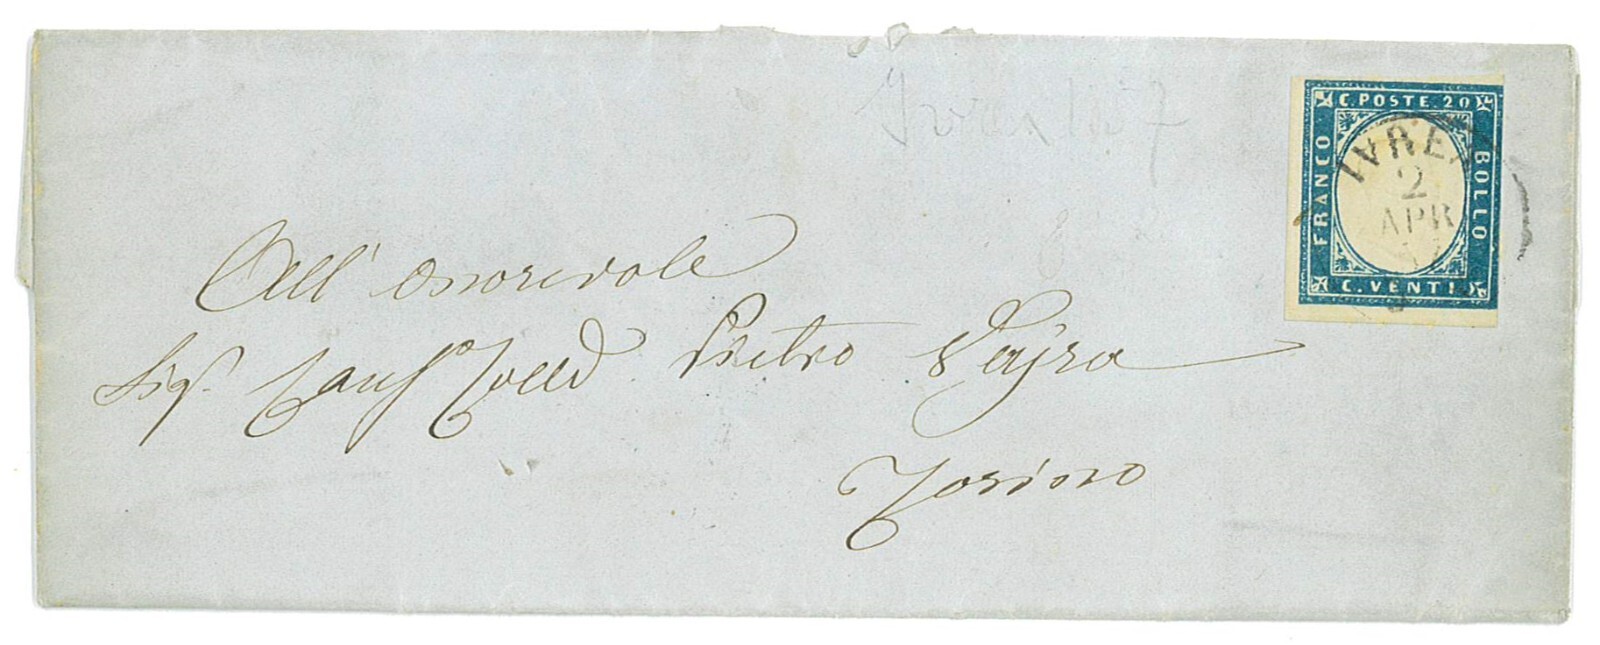 C. POSTE. 20
FRANCO
BOLLO
C. VENTI
IVREA
2
APR
All' Onorevole
Sig. Pietro Vajra
Torino